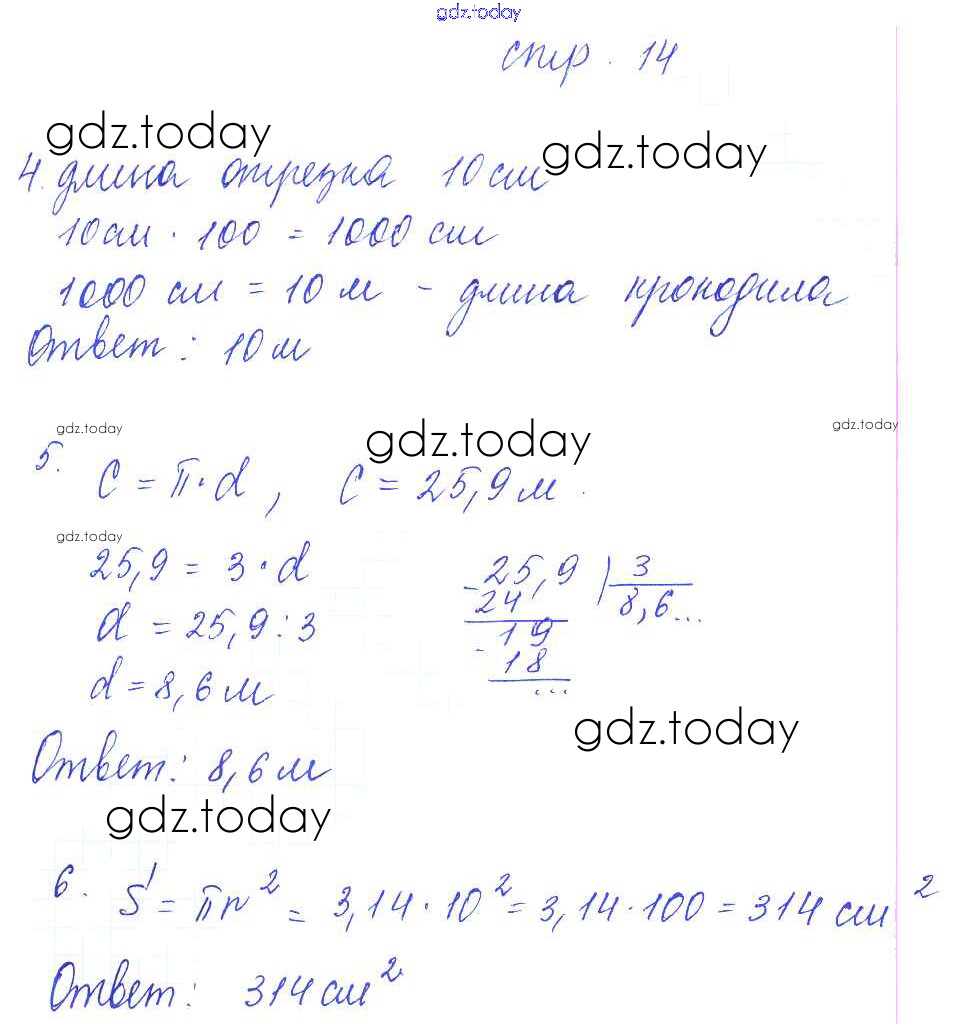 gdz.today
стр. 14
gdz.today
gdz.today
4. длина отрезка 10 см
10 см · 100 = 1000 см
1000 см = 10 м - длина крокодила
Ответ: 10 м
gdz.today
gdz.today
gdz.today
5. C = π · d, C = 25,9 м.
gdz.today
25,9 = 3 · d
d = 25,9 : 3
d = 8,6 м
- 25,9 | 3
24 8,6...
- 19
18
...
gdz.today
Ответ: 8,6 м
gdz.today
6. S = πr² = 3,14 · 10² = 3,14 · 100 = 314 см²
Ответ: 314 см²